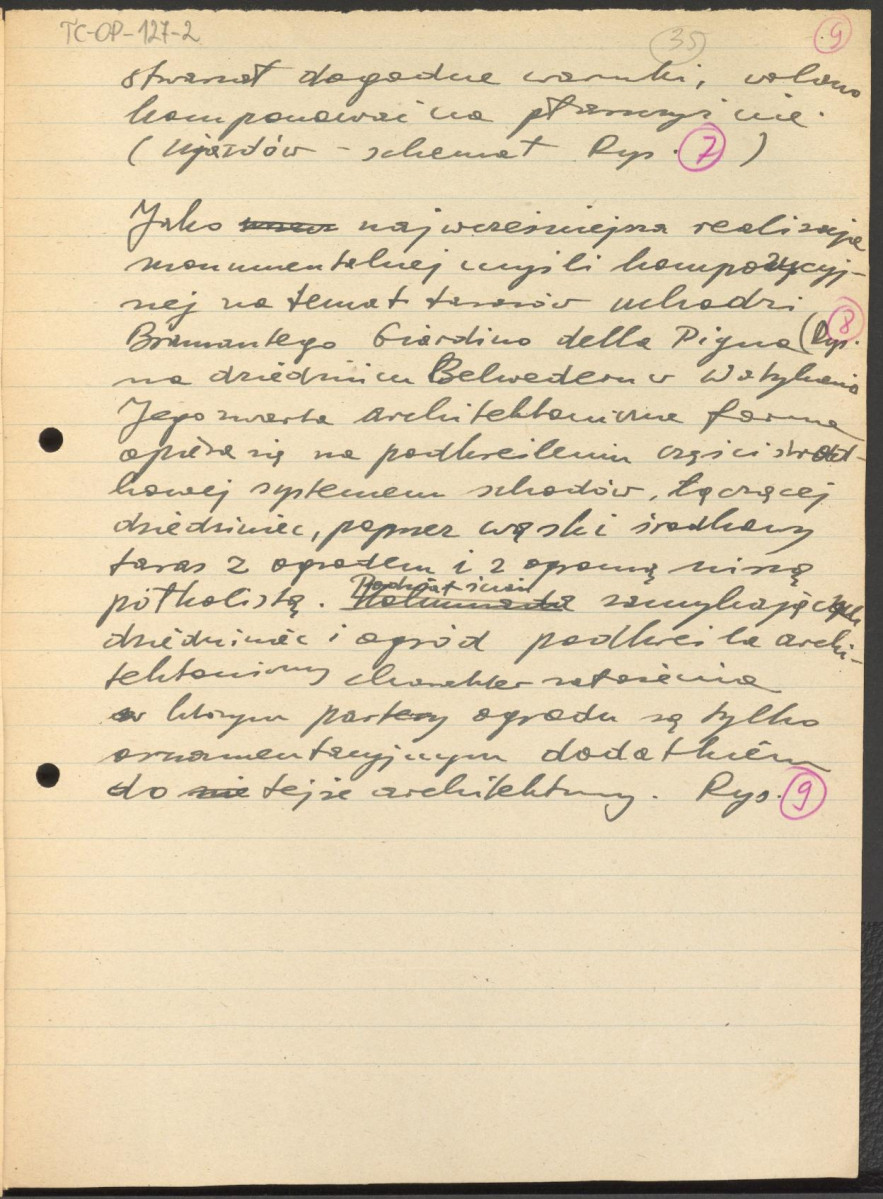 TC-OP-127-2
35
9
stwarzał dogodne warunki, wolano
komponować na płaszczyźnie.
(Ujazdów - schemat Rys. 7)
Jako najwcześniejsza realizacja
monumentalnej myśli kompozycyj-
nej na temat tarasów uchodzi
Bramantego Giardino della Pigna (Rys. 8
na dziedzińcu Belwederu w Watykanie
Jego zwarta architektoniczna forma
opiera się na podkreśleniu części środ-
kowej systemem schodów, łączącej
dziedziniec, poprzez wąski środkowy
taras z ogrodem i z ogromną niszą
półkolistą. ścian zamykających
dziedziniec i ogród podkreśla archi-
tektoniczny charakter założenia
w którym partery ogrodu są tylko
ornamentacyjnym dodatkiem
do tejże architektury. Rys. 9